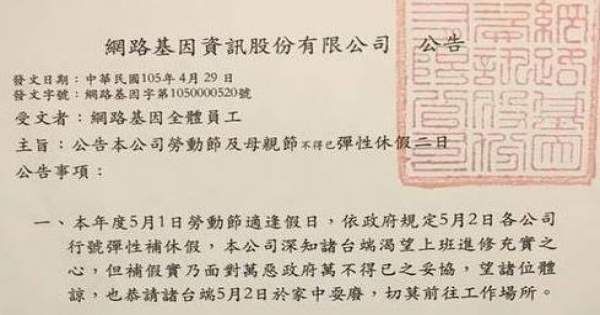 網路基因資訊股份有限公司 公告
發文日期：中華民國105年4月29日
發文字號：網路基因字第1050000520號
受文者：網路基因全體員工
主旨：公告本公司勞動節及母親節不得已彈性休假二日
公告事項：
一、本年度5月1日勞動節適逢假日，依政府規定5月2日各公司
行號彈性補休假，本公司深知諸台端渴望上班進修充實之
心，但補假實乃面對萬惡政府萬不得已之妥協，望諸位體
諒，也恭請諸台端5月2日於家中耍廢，切莫前往工作場所。